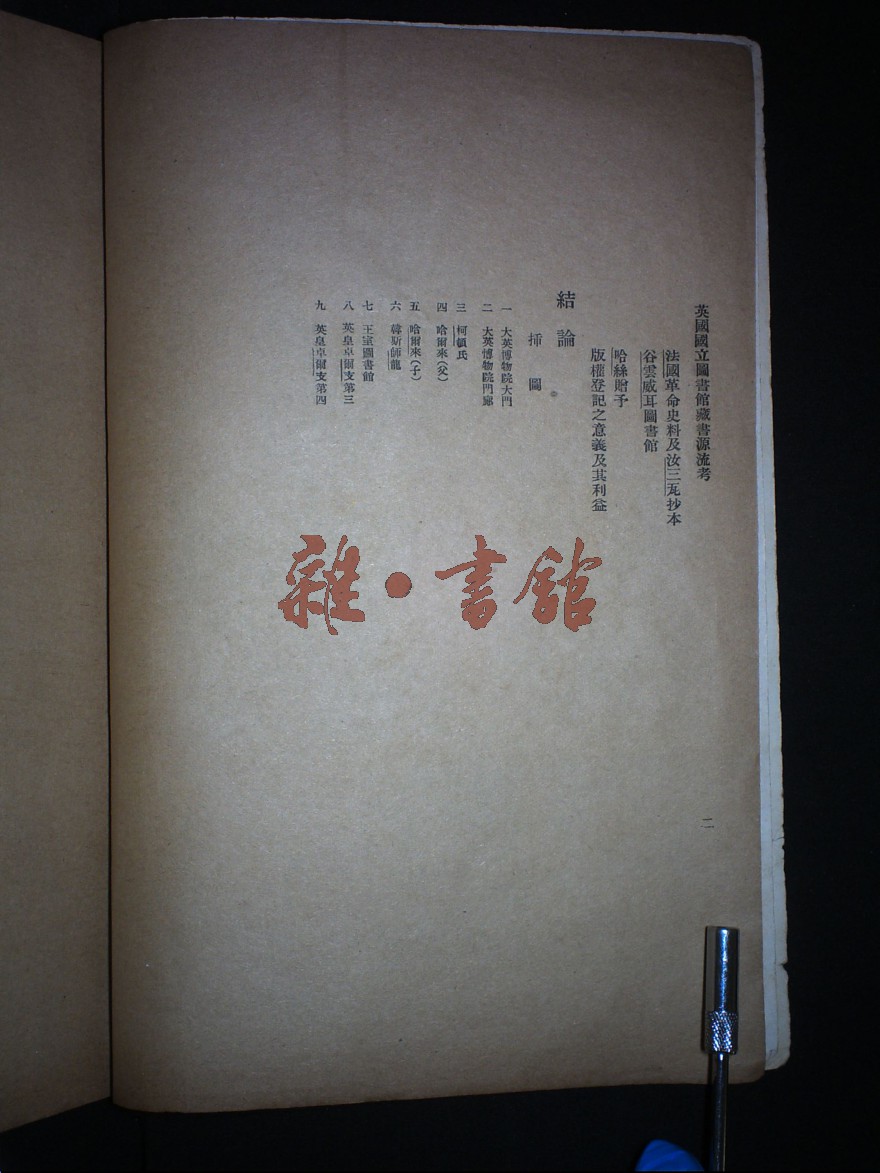 英國國立圖書館藏書源流考
法國革命史料及汝三瓦抄本
谷雲威耳圖書館
哈絲贈予
版權登記之意義及其利益
結論
插圖
一 大英博物院大門
二 大英博物院門廊
三 柯頓氏
四 哈爾來(父)
五 哈爾來(子)
六 韓斯師龍
七 王室圖書館
八 英皇卓爾支第三
九 英皇卓爾支第四
二
雜·書館